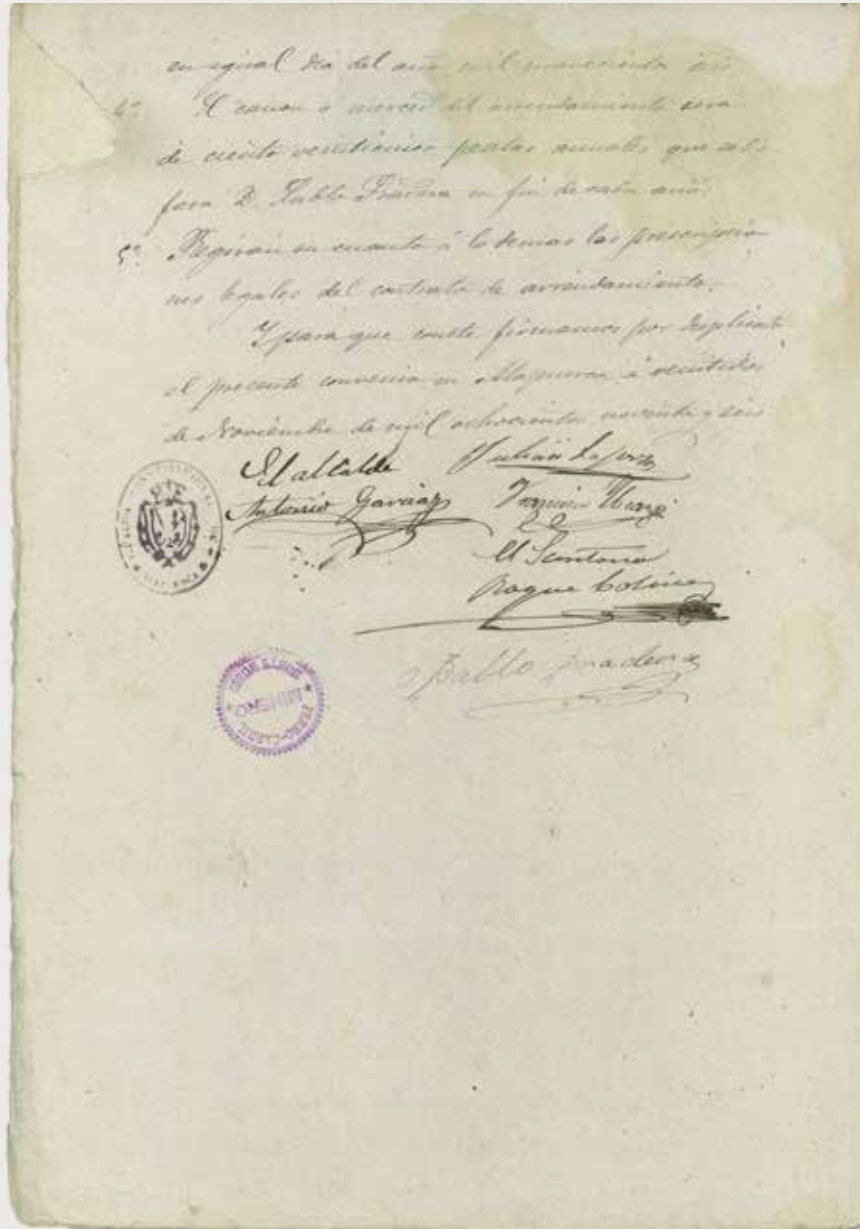 en igual dia del año mil novecientos seis
4º El canon o merced del arrendamiento será
de ciento veinticinco pesetas anuales que satis
fará D. Pablo Pradera en fin de cada año.
5º Regirán en cuanto á lo demas las prescripcio
nes legales del contrato de arrendamiento.
Y para que conste firmamos por duplicado
el presente convenio en á veintidos
de Noviembre de mil ochocientos noventa y seis
El alcalde Julián
Antonio Garcia
El Secretario
Roque
Pablo Pradera
MINERO
FERRO-CARRIL